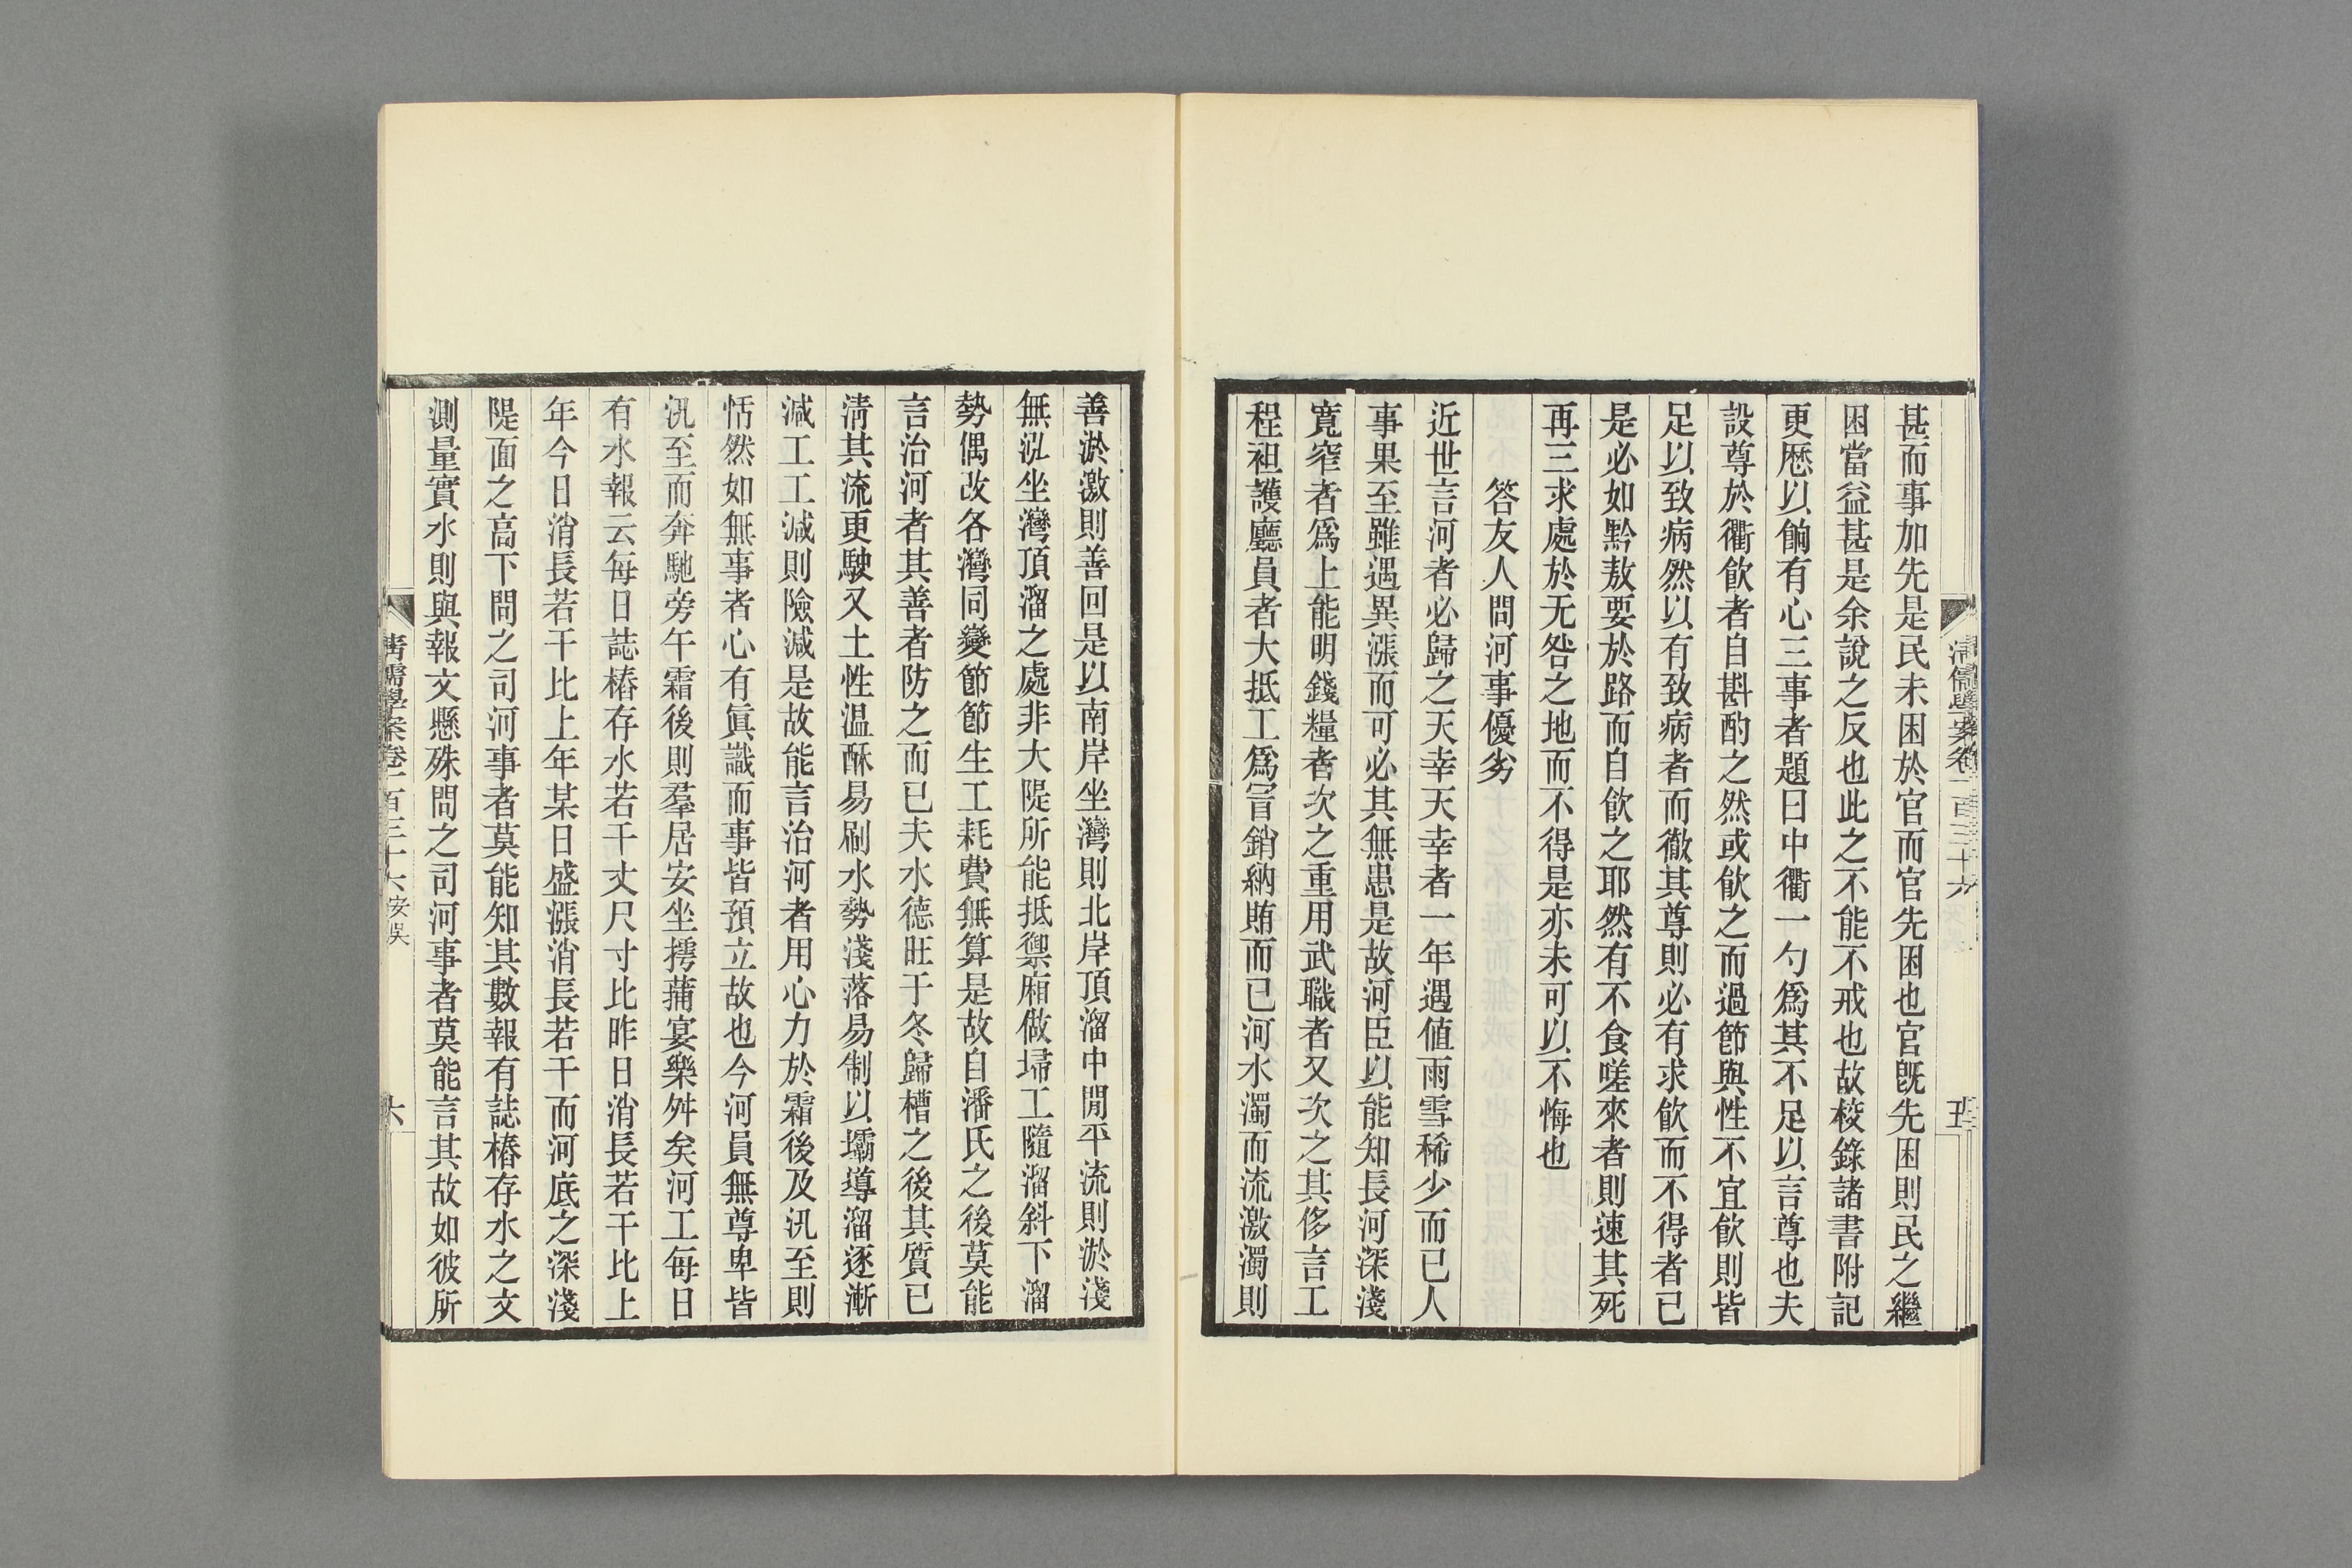 甚而事加先是民未困於官而官先困也官旣先困則民之繼
困當益甚是余說之反也此之不能不戒也故校錄諸書附記
更歷以餉有心三事者題曰中衢一勺爲其不足以言尊也夫
設尊於衢飮者自斟酌之然或飮之而過節與性不宜飮則皆
足以致病然以有致病者而徹其尊則必有求飮而不得者已
是必如黔敖要於路而自飮之耶然有不食嗟來者則速其死
再三求處於无咎之地而不得是亦未可以不悔也
答友人問河事優劣
近世言河者必歸之天幸天幸者一年遇值雨雪稀少而已人
事果至雖遇異漲而可必其無患是故河臣以能知長河深淺
寬窄者爲上能明錢糧者次之重用武職者又次之其侈言工
程袒護廳員者大抵工爲冒銷納賄而已河水濁而流激濁則
清儒學案卷一百三十六
五
善淤激則善回是以南岸坐灣則北岸頂溜中閒平流則淤淺
無泓坐灣頂溜之處非大隄所能抵禦廂做埽工隨溜斜下溜
勢偶改各灣同變節節生工耗費無算是故自潘氏之後莫能
言治河者其善者防之而已夫水德旺于冬歸槽之後其質已
淸其流更駛又土性温酥易刷水勢淺落易制以壩導溜逐漸
減工工減則險減是故能言治河者用心力於霜後及汛至則
恬然如無事者心有眞識而事皆預立故也今河員無尊卑皆
汛至而奔馳旁午霜後則羣居安坐摴蒱宴樂舛矣河工每日
有水報云每日誌樁存水若干丈尺寸比昨日消長若干比上
年今日消長若干比上年某日盛漲消長若干而河底之深淺
隄面之高下問之司河事者莫能知其數報有誌樁存水之文
測量實水則與報文懸殊問之司河事者莫能言其故如彼所
清儒學案卷一百三十六 安吳
六